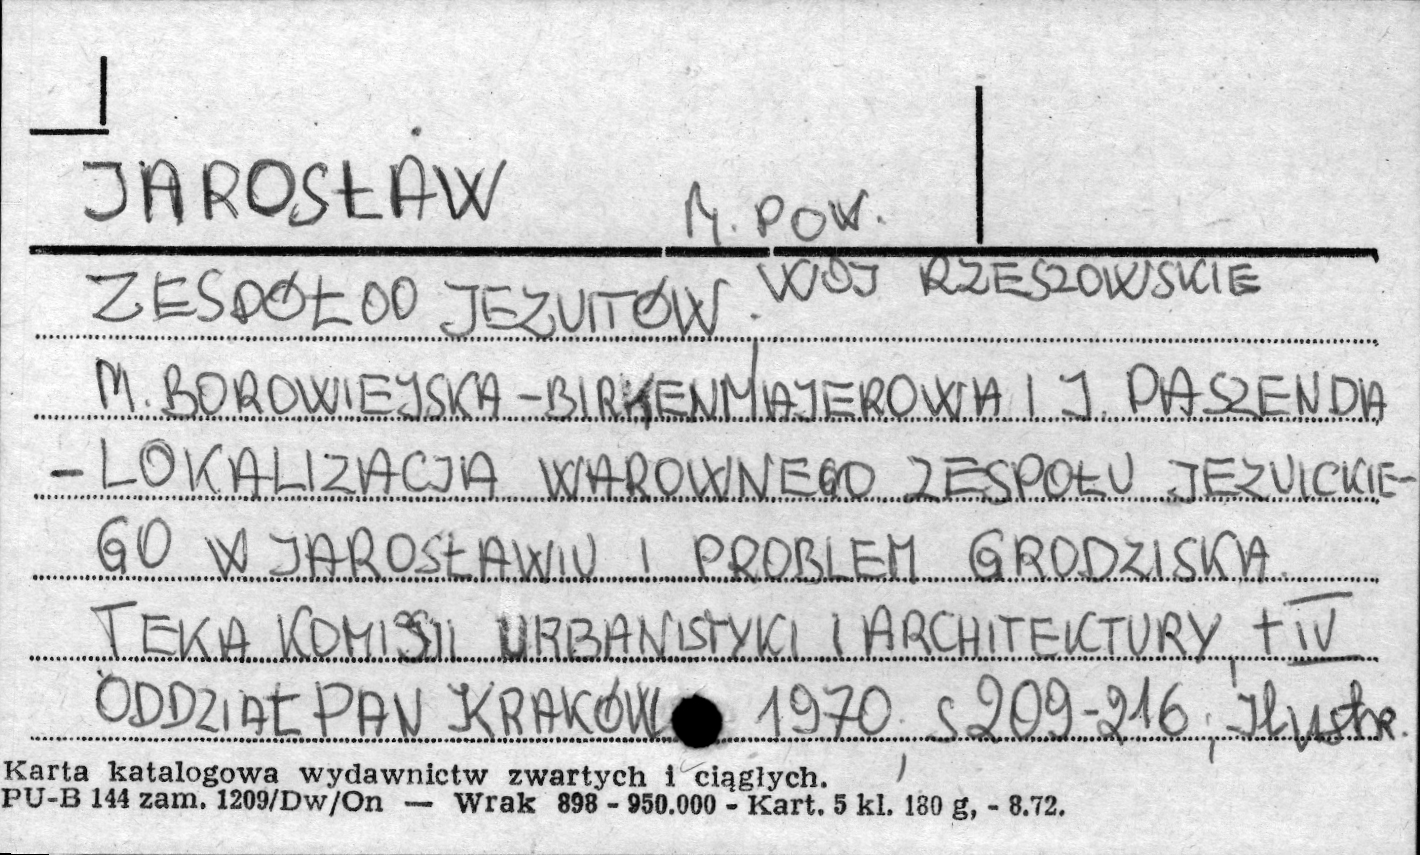 JAROSŁAW M. POW.
WOJ RZESZOWSKIE
ZESPÓŁ OO JEZUITÓW.
M. BOROWIEJSKA-BIRKENMAJEROWA I J. PASZENDA
- LOKALIZACJA WAROWNEGO ZESPOŁU JEZUICKIE-
GO W JAROSŁAWIU I PROBLEM GRODZISKA.
TEKA KOMISJI URBANISTYKI I ARCHITEKTURY, t IV
ODDZIAŁ PAN KRAKÓW 1970, s 209-216, Ilustr.
Karta katalogowa wydawnictw zwartych i ciągłych.
PU-B 144 zam. 1209/Dw/On — Wrak 898 - 950.000 - Kart. 5 kl. 180 g, - 8.72.